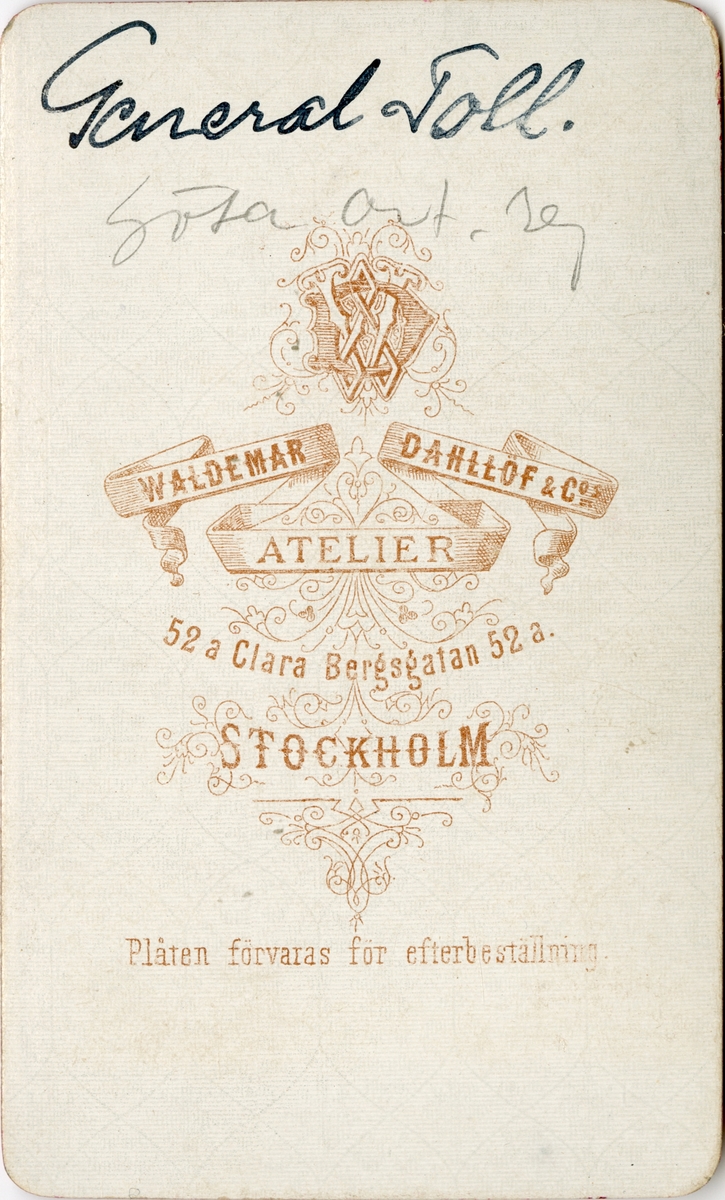 General Toll.
Göta Art. Reg
WALDEMAR DAHLLÖF & Cos
ATELIER
52 a Clara Bergsgatan 52 a.
STOCKHOLM
Plåten förvaras för efterbeställning.